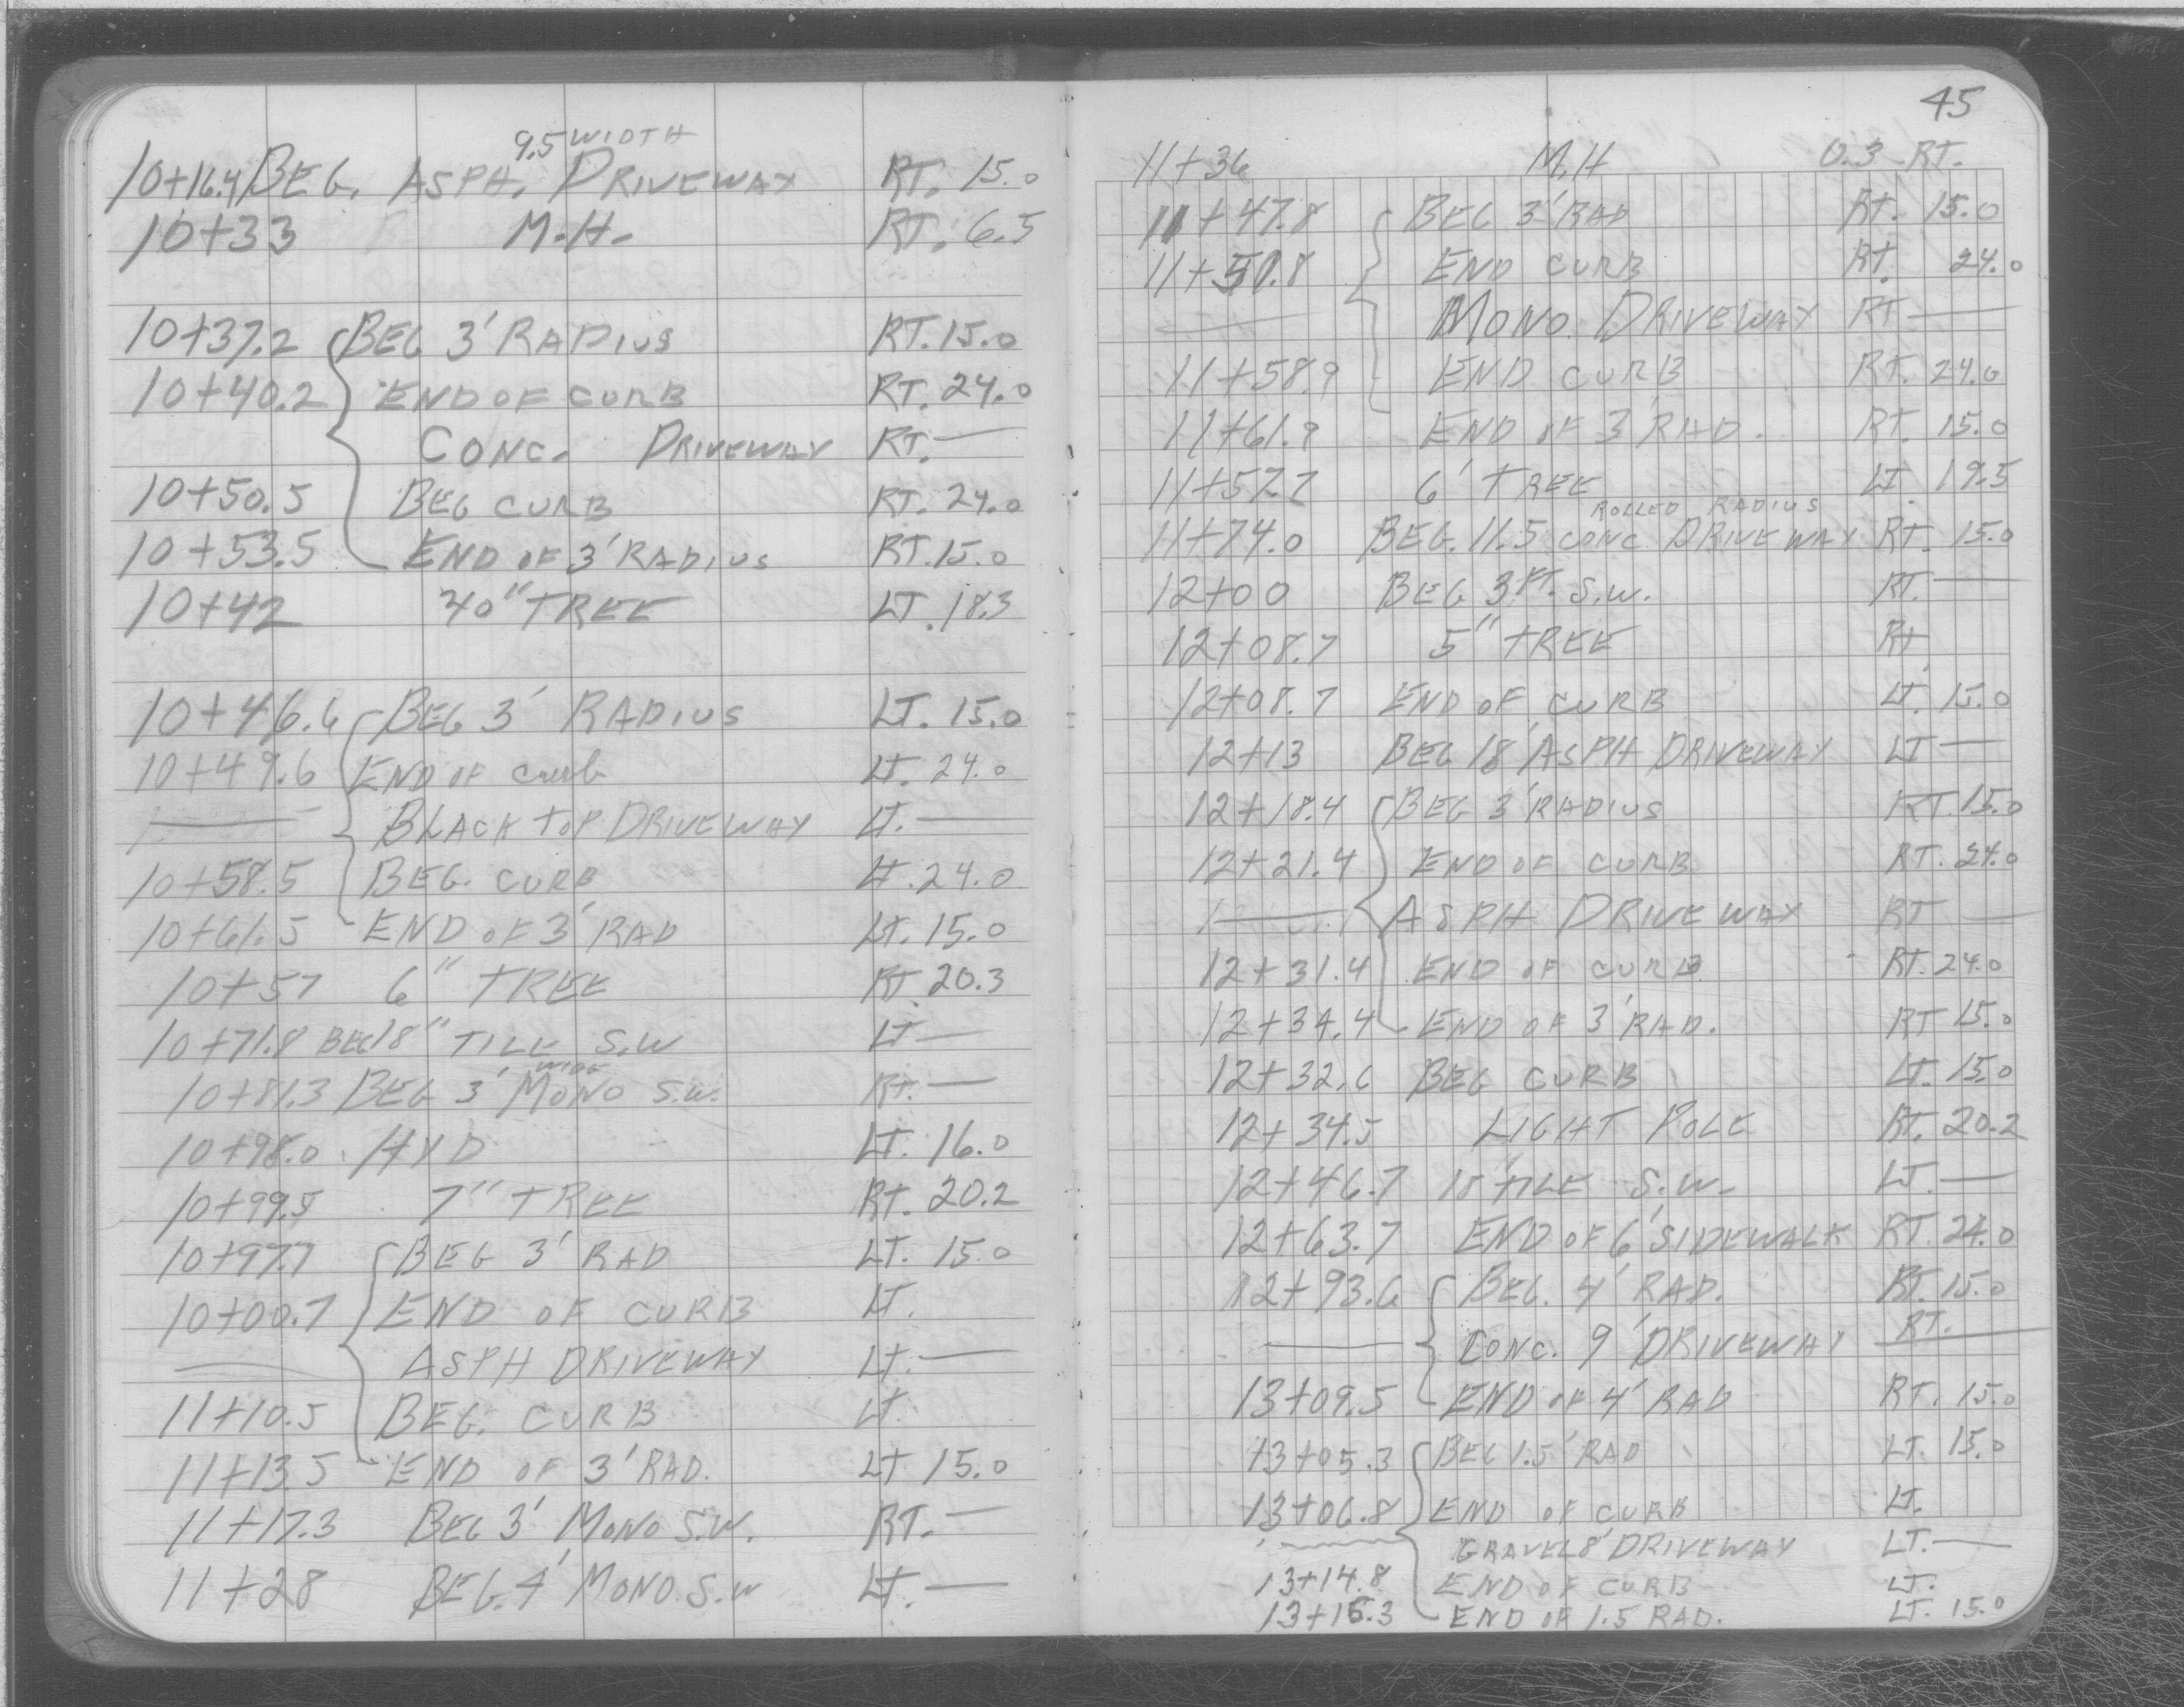 9.5 WIDTH
10+16.4 BEG. ASPH. DRIVEWAY RT. 15.0
10+33 M.H. RT. 6.5
10+37.2 BEG 3' RADIUS RT. 15.0
10+40.2 END OF CURB RT. 24.0
CONC. DRIVEWAY RT. —
10+50.5 BEG CURB RT. 24.0
10+53.5 END OF 3' RADIUS RT. 15.0
10+42 40" TREE LT. 18.3
10+46.6 BEG 3' RADIUS LT. 15.0
10+49.6 END OF Curb LT. 24.0
— BLACK TOP DRIVEWAY LT. —
10+58.5 BEG. CURB LT. 24.0
10+61.5 END OF 3' RAD LT. 15.0
10+57 6" TREE RT. 20.3
10+71.8 BEG 18" TILE S.W LT —
WIDE
10+81.3 BEG 3' MONO S.W. RT. —
10+98.0 HYD LT. 16.0
10+99.5 7" TREE RT. 20.2
10+97.7 BEG 3' RAD LT. 15.0
10+00.7 END OF CURB LT.
— ASPH DRIVEWAY LT. —
11+10.5 BEG. CURB LT
11+13.5 END OF 3' RAD. LT 15.0
11+17.3 BEG 3' MONO S.W. RT. —
11+28 BEG. 4' MONO. S.W LT. —
45
11+36 M.H 0.3 RT.
11+47.8 BEG 3' RAD RT. 15.0
11+50.8 END CURB RT. 24.0
— MONO. DRIVEWAY RT —
11+58.9 END CURB RT. 24.0
11+61.9 END OF 3' RAD. RT. 15.0
11+57.7 6' TREE LT. 19.5
ROLLED RADIUS
11+74.0 BEG. 11.5 CONC. DRIVEWAY RT. 15.0
12+00 BEG 3 FT. S.W. RT. —
12+08.7 5" TREE RT
12+08.7 END OF CURB LT. 15.0
12+13 BEG 18' ASPH DRIVEWAY LT —
12+18.4 BEG 3' RADIUS RT. 15.0
12+21.4 END OF CURB RT. 24.0
— ASPH DRIVEWAY RT —
12+31.4 END OF CURB RT. 24.0
12+34.4 END OF 3' RAD. RT 15.0
12+32.6 BEG CURB LT. 15.0
12+34.5 LIGHT POLE RT. 20.2
12+46.7 18" TILE S.W. LT. —
12+63.7 END OF 6' SIDEWALK RT. 24.0
12+93.6 BEG. 4' RAD. RT. 15.0
— CONC. 9' DRIVEWAY RT. —
13+09.5 END OF 4' RAD RT. 15.0
13+05.3 BEG 1.5' RAD LT. 15.0
13+06.8 END OF CURB LT.
— GRAVEL 8' DRIVEWAY LT. —
13+14.8 END OF CURB LT.
13+16.3 END OF 1.5 RAD. LT. 15.0